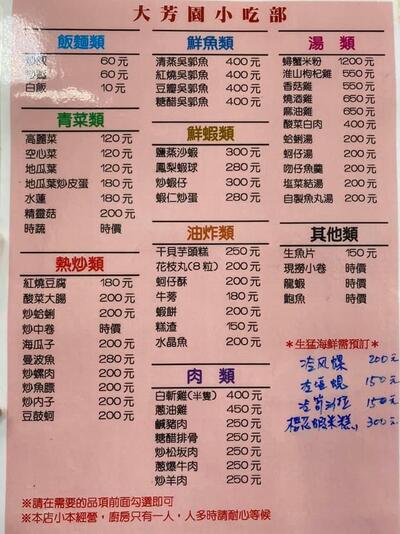 大芳園小吃部
飯麵類
炒飯 60元
炒麵 60元
白飯 10元
青菜類
高麗菜 120元
空心菜 120元
地瓜葉 120元
地瓜葉炒皮蛋 180元
水蓮 180元
精靈菇 200元
時蔬 時價
熱炒類
紅燒豆腐 180元
酸菜大腸 200元
炒蛤蜊 200元
炒中卷 時價
海瓜子 200元
曼波魚 280元
炒螺肉 200元
炒魚膘 200元
炒內子 200元
豆鼓蚵 200元
鮮魚類
清蒸吳郭魚 400元
紅燒吳郭魚 400元
豆瓣吳郭魚 400元
糖醋吳郭魚 400元
鮮蝦類
鹽蒸沙蝦 300元
鳳梨蝦球 280元
炒蝦仔 300元
蝦仁炒蛋 280元
油炸類
干貝芋頭糕 250元
花枝丸(8粒) 200元
蚵仔酥 200元
牛蒡 180元
蝦餅 200元
糕渣 150元
水晶魚 200元
肉 類
白斬雞(半隻) 400元
蔥油雞 450元
鹹豬肉 250元
糖醋排骨 250元
炒松坂肉 250元
蔥爆牛肉 250元
炒羊肉 250元
湯 類
蟳蟹米粉 1200元
淮山枸杞雞 550元
香菇雞 550元
燒酒雞 650元
麻油雞 650元
酸菜白肉 400元
蛤蜊湯 200元
蚵仔湯 200元
吻仔魚羹 200元
塩菜結湯 200元
自製魚丸湯 200元
其他類
生魚片 150元
現撈小卷 時價
龍蝦 時價
鮑魚 時價
＊生猛海鮮需預訂＊
冷风螺 200元
150元
150元
300元
※請在需要的品項前面勾選即可
※本店小本經營，廚房只有一人，人多時請耐心等候